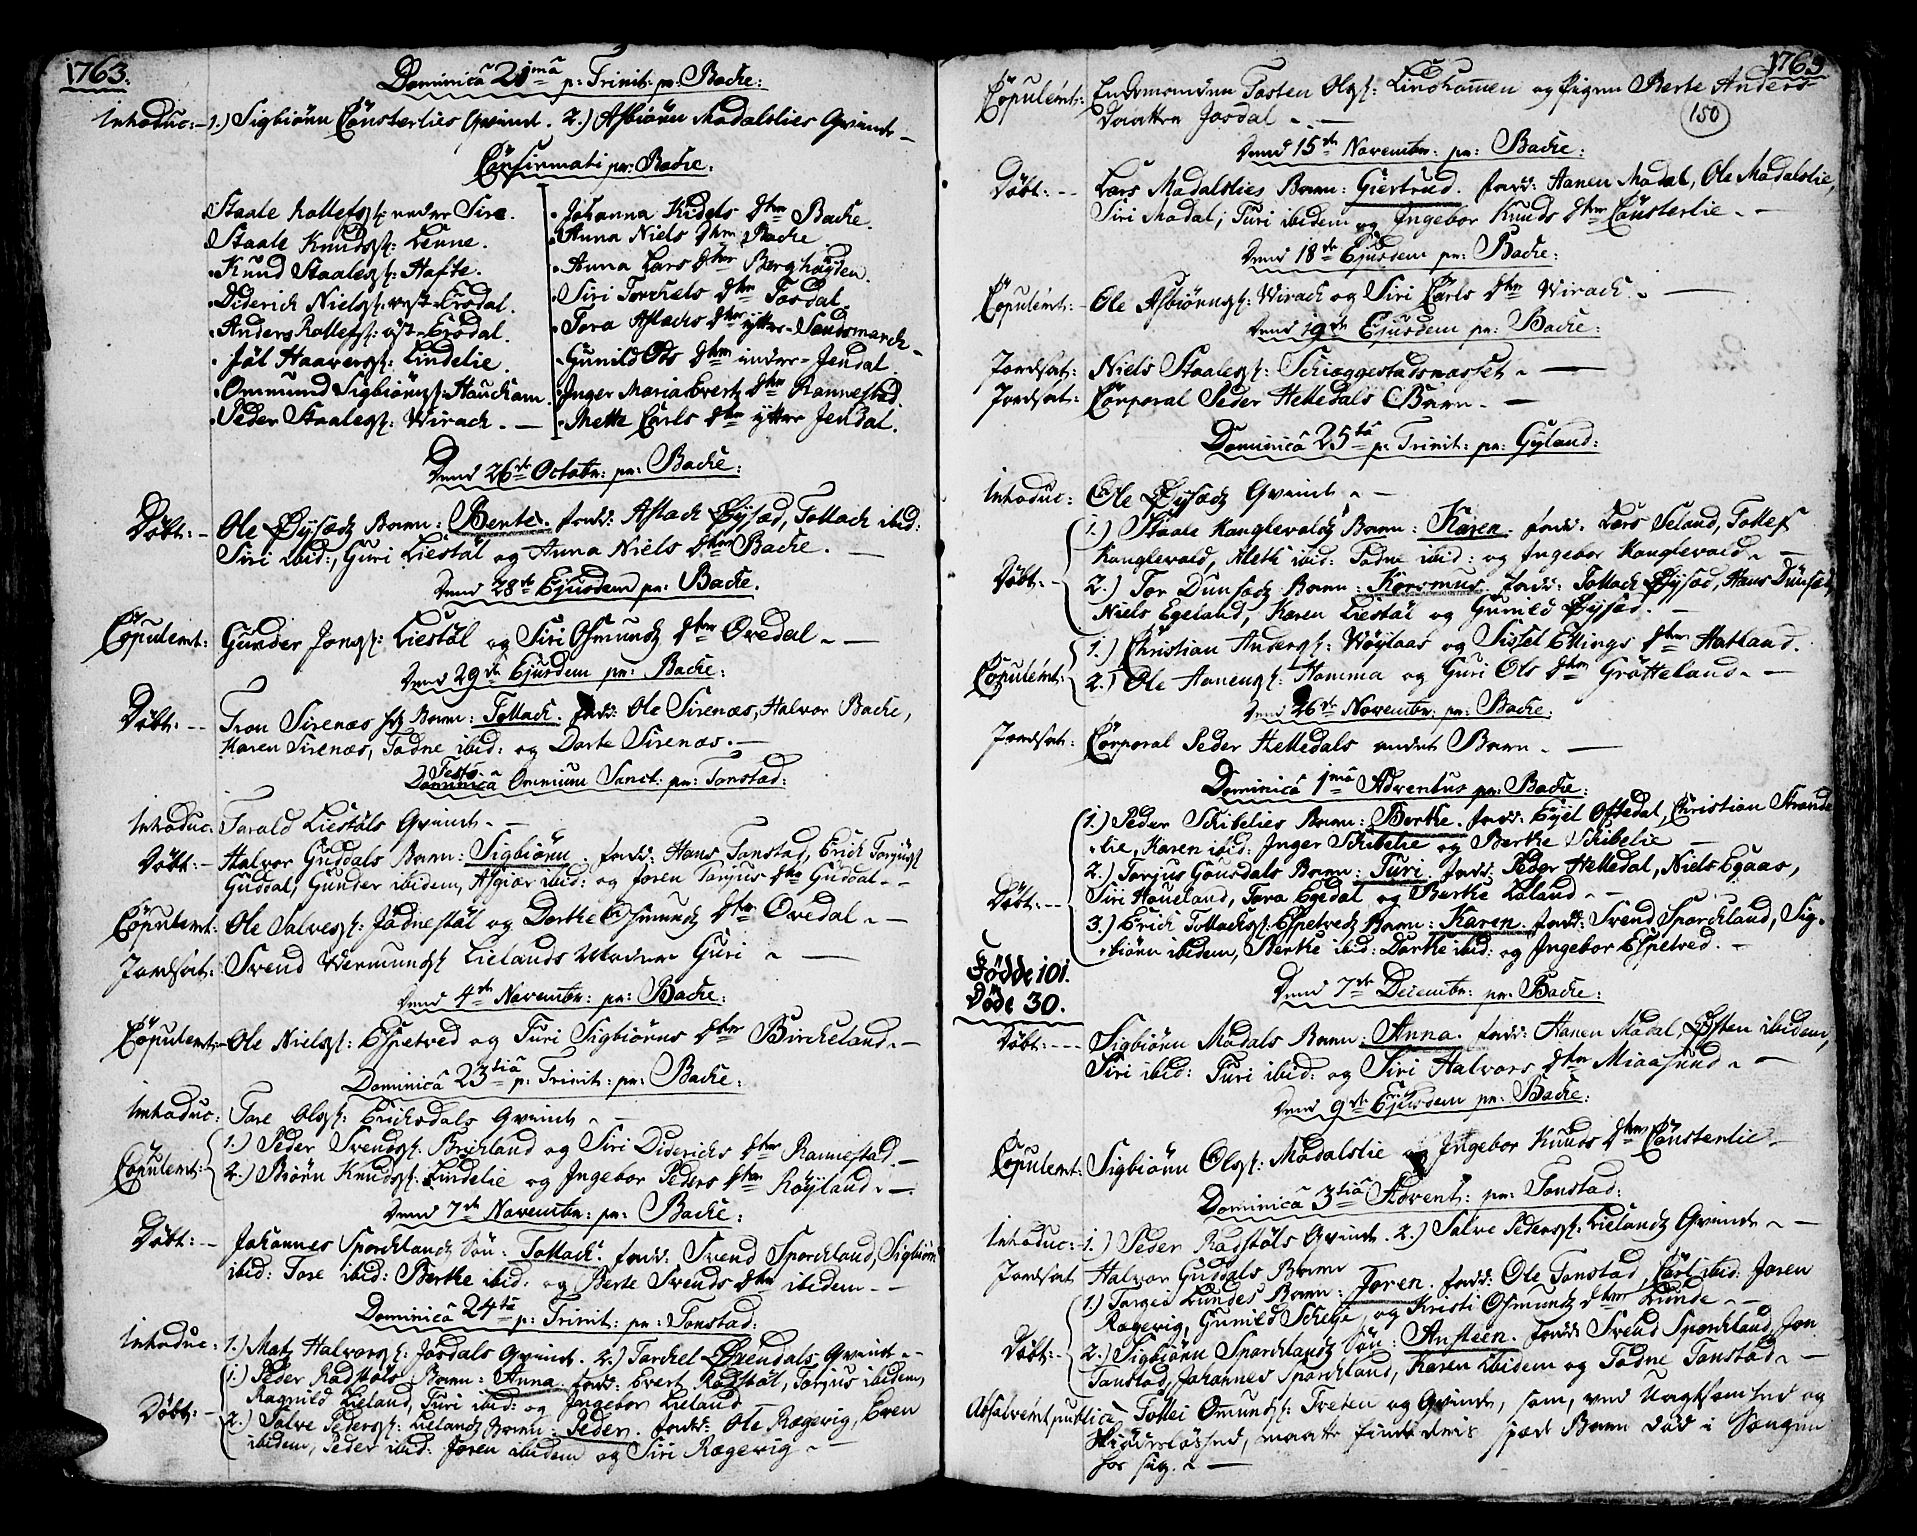 1763.
Dominica 21ma p: Trinit: pr: Backe:
Introduc:- 1.) Sigbiörn Cönsterlies Qvinde. 2.) Asbiörn Madalslies Qvinde -
Confirmati pr: Backe:
Staale Rollefss: nedre Sire.
Staale Knudss: Lenne.
Knud Staaless: Hafte.
Diderich Nielss: vest-Ersdal.
Anders Rollefs: öst-Ersdal.
Joël Haavers: Lindelie.
Ommund Sigbiörns: Hauckom.
Peder Staaless: Wirach. -
Johanna Kidels dtr Backe.
Anna Niels dtr Backe
Anna Lars dtr Berghögden.
Siri Torchels dtr Josdal.
Tora Aslachs dtr yttre-Sandsmarck.
Gunild Ods dtr indre-Jendal.
Inger Maria Evertz dtr Rannestad.
Mette Carls dtr yttre Jendal.
Dend 26de Octobr: pr: Backe:
Döbt:- Ole Öysædz Barn: Bente. fadd: Aslach Öysæd, Tollach ibid:
Siri ibid:, Guri Liestöl og Anna Niels dtr Backe. -
Dend 28de Ejusdem pr: Backe.
Copulerit: Gunder Jonss: Liestöl og Siri Osmundz dtr Ovedal -
Dend 29de Ejusdem pr: Backe:
Döbt:-- Tron Sirenæs Barn: Tollach. fadd: Ole Sirenæs, Halvor Backe,
Karen Sirenæs, Tadne ibid: og Dorte Sirenæs. -
Festo
Omnium Sanct: pr: Tonstad:
Introduc: Tarald Liestöls Qvinde -
Döbt:- Halvor Guddals Barn: Sigbiörn. fadd: Hans Tonstad, Erich Torjuss
Guddal, Gunder ibidem, Asgiær ibid: og Joren Torjus dtr Guddal -
Copulerit: Ole Salvess: Jödnestöl og Dorthe Osmundz dtr Ovedal -
Jordfæst: Svend Wermunds Lielands Moder Guri -
Dend 4de Novembr: pr: Backe:
Copulerit:- Ole Nielss: Espetved og Turi Sigbiörns dtr Birckeland. -
Dominica 23tia p: Trinit: pr: Backe:
Introduc: Tore Olss: Erichsdals Qvinde -
Copulerit: 1.) Peder Svendss: Birchland og Siri Diderichs dtr Rannestad. -
2.) Biörn Knudss: Lindelie og Ingebor Peders dtr Röyland. -
Dend 7de Novembr: pr: Backe:
Döbt:- Johannes Sporchlandz Sön: Tollach. fadd: Svend Sporchland, Sigbiörn
ibid: Tore ibid: Berthe ibid: og Berte Svends dtr ibidem -
Dominica 24ta p: Trinit: pr: Tonstad:
Introduc: 1.) Matz Halvorss: Josdals Qvinde. 2.) Torchel Öxendals Qvinde -
Döbt:- 1.) Peder Rodstöls Barn: Anna. fadd: Evert Rodstöl, Torjus ibidem,
Ragnild Lieland, Turi ibid: og Ingebor Lieland
2.) Salve Pederss: Lielandz Barn: Peder. fadd: Ole Rægevig, Even
ibidem, Peder ibid: Joren ibidem og Siri Rægevig -
1763
150
Copulerit: Enckemanden Tosten Olss: Lindhommen og Pigen Berte Anders
Daatter Josdal -
Dend 15de Novembr: pr: Backe:
Döbt:-- Lars Madalslies Barn: Giertrud. fadd: Aanen Madal, Ole Madalslie,
Siri Madal, Turi ibidem og Ingebor Knuds dtr Cönsterlie -
Dend 18de Ejusdem pr: Backe:
Copulerit:- Ole Asbiörns: Wirach og Siri Carls dtr Wirach. -
Dend 19de Ejusdem pr: Backe:
Jordfæst: Niels Staaless: Schiæggestadsnæsset -
Jordfæst: Corporal Peder Helledals Barn. -
Dominica 25ta p: Trinit: pr: Gyland:
Introduc: Ole Öysædz Qvinde -
Döbt:- 1.) Staale Kanglevaldz Barn: Karen. fadd: Lars Seland, Tollef
Kanglevald, Aleth ibid: Tadne ibid: og Ingebor Kanglevald -
2.) Tor Dunsædz Barn: Korsmus. fadd: Tollach Öysæd, Hans Dunsæd,
Niels Egeland, Karen Liestöl og Gunild Öysæd. -
Copulerit: 1.) Christian Anderss: Höylaas og Sissel Ellings dtr Hatland.
2.) Ole Aanens: Homma og Guri Ols dtr Grötteland -
Dend 26de Novembr: pr: Backe:
Jordfæst: Corporal Peder Helledals andet Barn -
Dominica 1ma Adventus pr: Backe:
Döbt:-- 1.) Peder Schibelies Barn: Berthe. fadd: Eyel Ofstedal, Christian Strande
lie, Karen ibid: Inger Schibelie og Berthe Schibelie -
2.) Torjus Gousdals Barn: Turi. fadd: Peder Helledal, Niels Egaas,
Siri Houeland, Tora Egedal og Berthe Loland -
3.) Erich Tollachss: Espetvedz Barn: Karen. fadd: Svend Sporchland, Sig-
biörn ibidem, Berthe ibid: Dorthe ibid: og Ingebor Espetved. -
Födde 101.
Döde 30.
Dend 7de Decembr: pr: Backe:
Döbt:--- Sigbiörn Madals Barn: Anna. fadd: Aanen Madal, Östen ibidem,
Siri ibid: Turi ibid: og Siri Halvors dtr Miaasund -
Dend 9de Ejusdem pr: Backe:
Copulerit: Sigbiörn Olss: Madalslie og Ingebor Knuds dtr Cönsterlie -
Dominica 3tia Advent: pr: Tonstad:
Introduc:- 1.) Peder Rodstöls Qvinde. 2.) Salve Pederss: Lielandz Qvinde -
Jordfæst Halvor Guddals Barn
Döbt:- 1.) Torgei Lundes Barn: Joren. fadd: Ole Tonstad, Carl ibid: Joren
Rægevig, Gunild Scheije og Kristi Osmundz dtr Lunde -
2.) Sigbiörn Sporchlandz Sön: Ansteen. fadd: Svend Sporchland, Jon
Tonstad, Johannes Sporchland, Karen ibidem og Tadne Tonstad -
Absolverit publice Tollei Omundss: Treten og Qvinde, som, ved Uagtsomhed og
Skiödeslöshed, maatte finde deris spæde Barn död i Sengen
hos sig. -